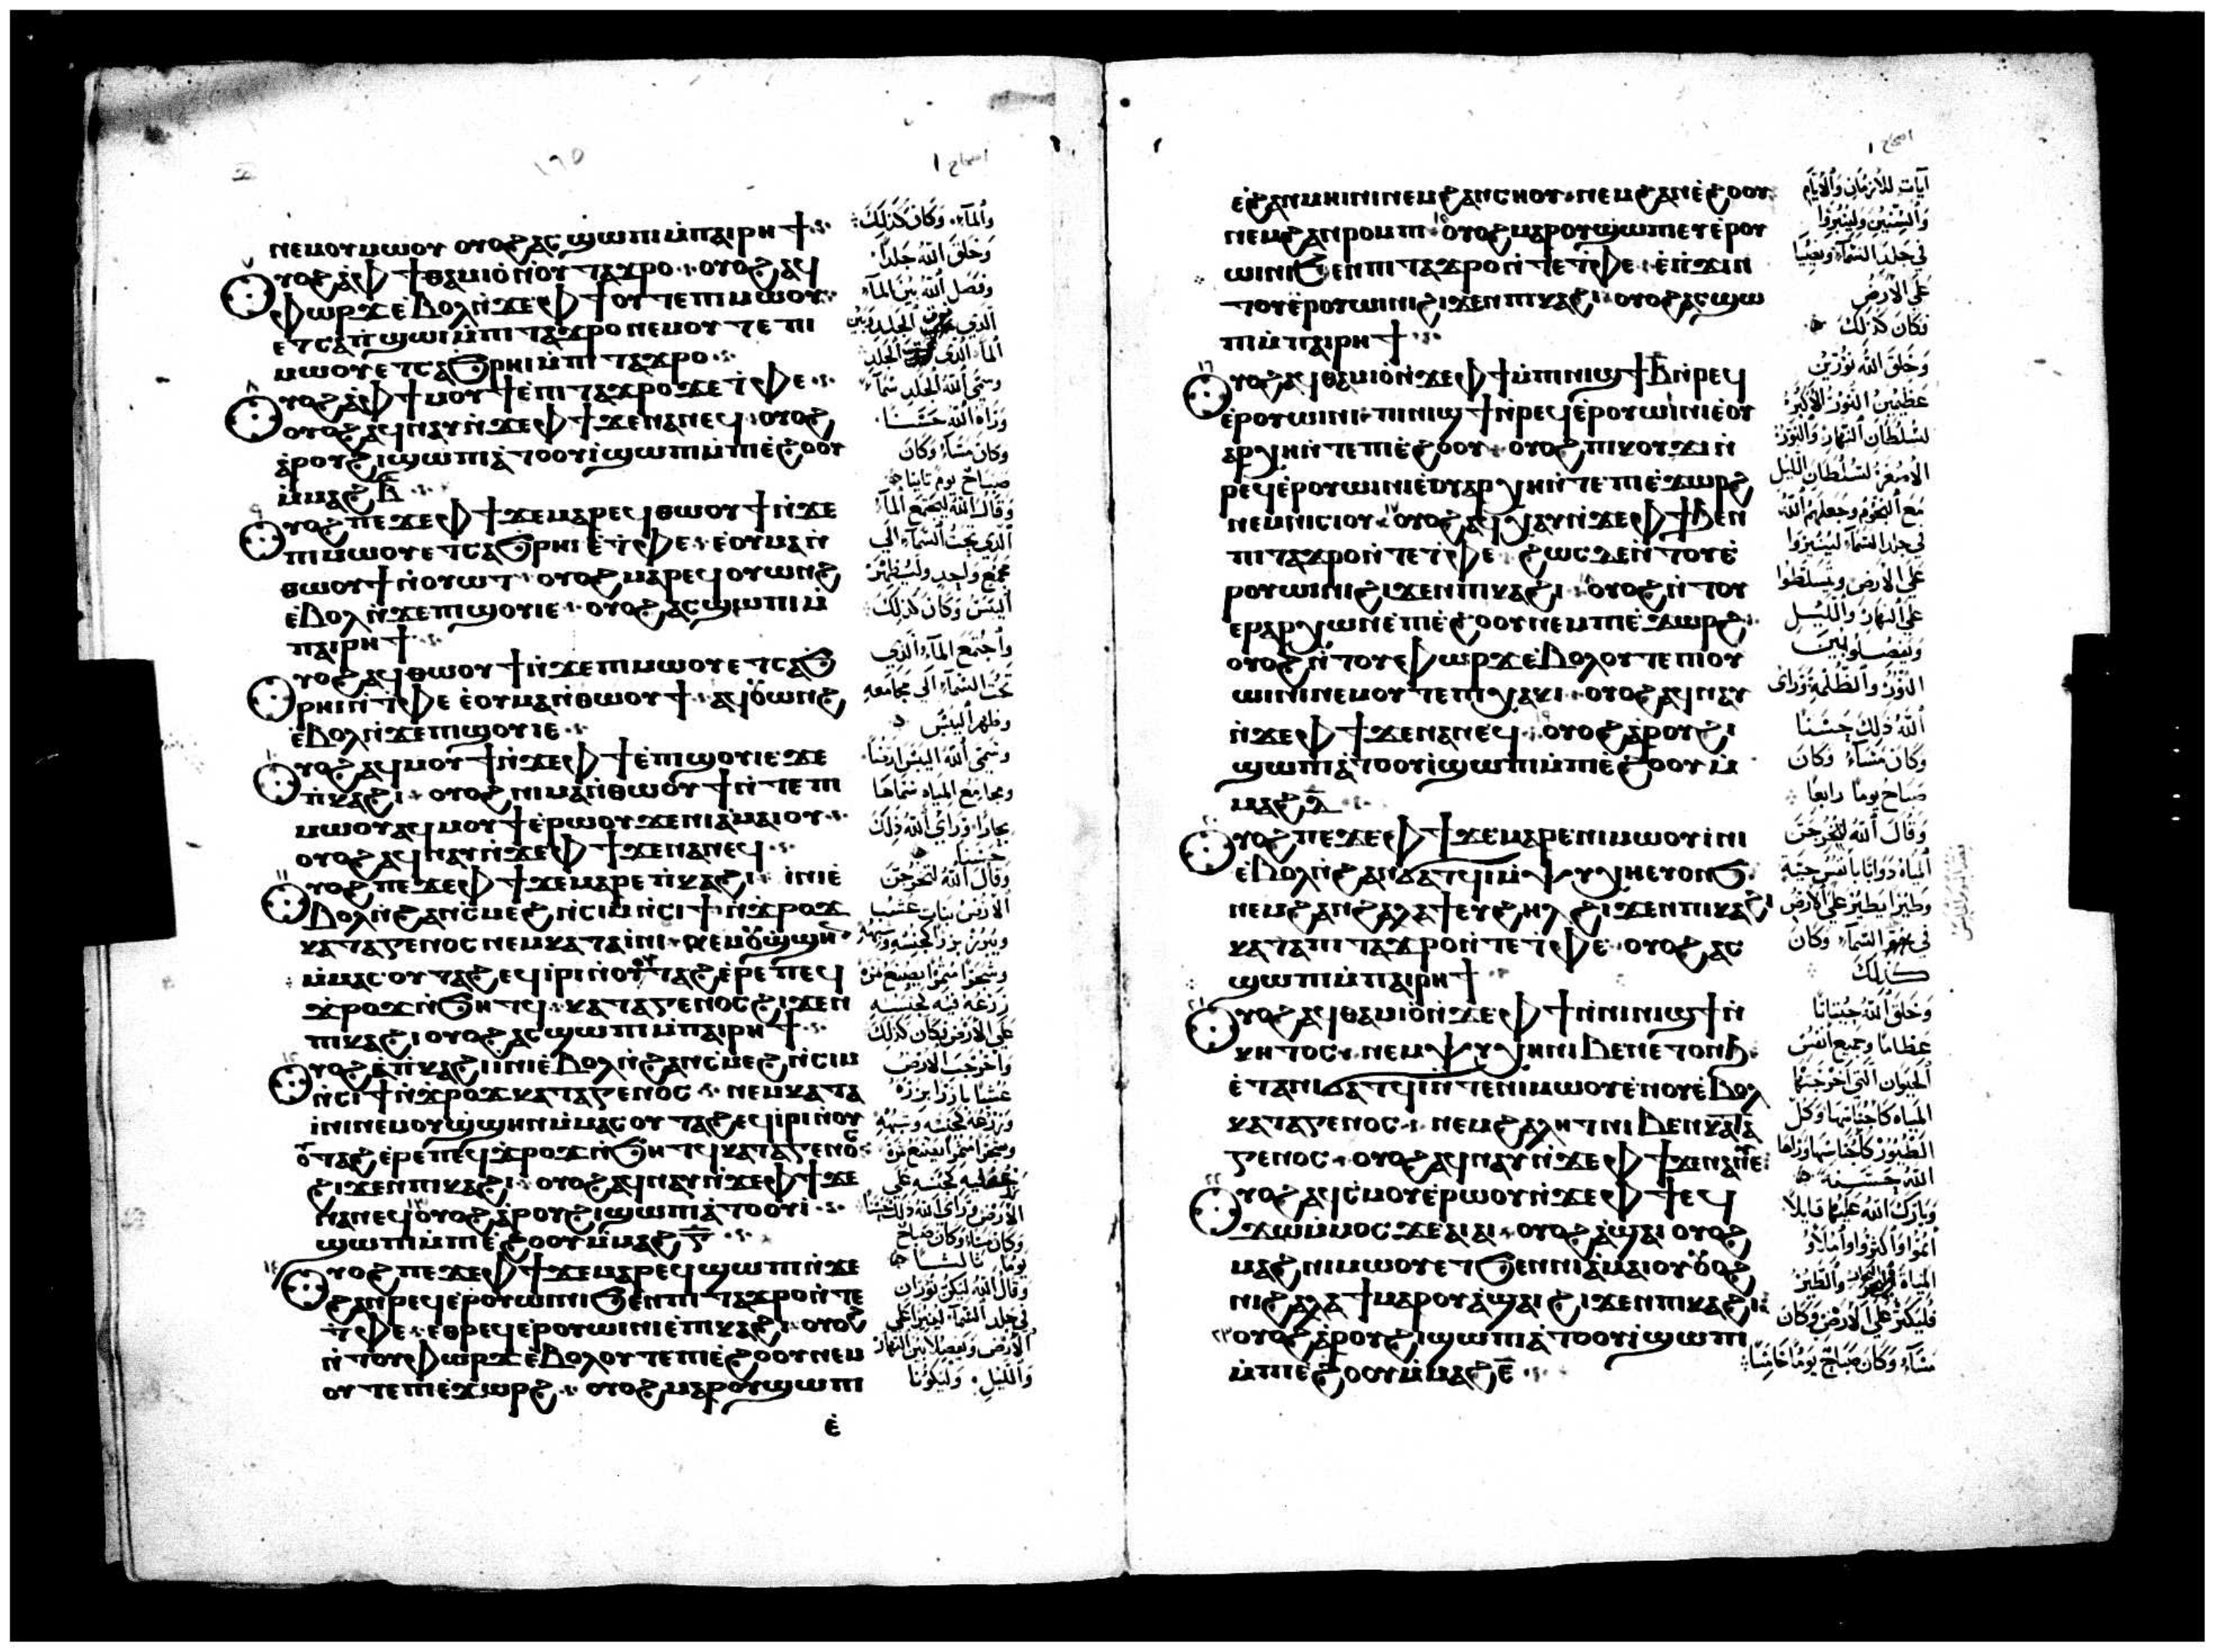 ⲛⲉⲙⲟⲩⲙⲱⲟⲩ ⲟⲩⲟϩ ⲁⲥϣⲱⲡⲓ ⲙ̀ⲡⲁⲓⲣⲏϯ
ⲟⲩⲟϩ ⲁ̀ⲫϯ ⲑⲁⲙⲓⲟ̀ ⲛ̀ⲟⲩⲧⲁϫⲣⲟ ⲟⲩⲟϩ ⲁϥ
ⲫⲱⲣϫ ⲉ̀ⲃⲟⲗ ⲛ̀ϫⲉⲫϯ ⲟⲩⲧⲉ ⲡⲓⲙⲱⲟⲩ
ⲉⲧⲥⲁⲡ̀ϣⲱⲓ ⲙ̀ⲡⲓⲧⲁϫⲣⲟ ⲛⲉⲙⲟⲩⲧⲉ ⲡⲓ
ⲙⲱⲟⲩ ⲉⲧⲥⲁϧⲣⲏⲓ ⲙ̀ⲡⲓⲧⲁϫⲣⲟ
ⲟⲩⲟϩ ⲁ̀ⲫϯ ⲙⲟⲩϯ ⲉ̀ⲡⲓⲧⲁϫⲣⲟ ϫⲉ ⲧ̀ⲫⲉ
ⲟⲩⲟϩ ⲁϥⲛⲁⲩ ⲛ̀ϫⲉⲫϯ ϫⲉ ⲛⲁⲛⲉϥ ⲟⲩⲟϩ
ⲁ̀ⲣⲟⲩϩⲓ ϣⲱⲡⲓ ⲁ̀ⲧⲟⲟⲩⲓ̀ ϣⲱⲡⲓ ⲙ̀ⲡⲓⲉ̀ϩⲟⲟⲩ
ⲙ̀ⲙⲁϩ ⲃ̅
ⲟⲩⲟϩ ⲡⲉϫⲉ ⲫϯ ϫⲉ ⲙⲁⲣⲉϥⲑⲱⲟⲩϯ ⲛ̀ϫⲉ
ⲡⲓⲙⲱⲟⲩ ⲉⲧⲥⲁϧⲣⲏⲓ ⲉ̀ⲧ̀ⲫⲉ ⲉⲟⲩⲙⲁⲛ̀
ⲑⲱⲟⲩϯ ⲛ̀ⲟⲩⲱⲧ ⲟⲩⲟϩ ⲙⲁⲣⲉϥⲟⲩⲱⲛϩ
ⲉ̀ⲃⲟⲗ ⲛ̀ϫⲉ ⲡⲓϣⲟⲩⲓⲉ ⲟⲩⲟϩ ⲁⲥϣⲱⲡⲓ ⲙ̀
ⲡⲁⲓⲣⲏϯ
ⲟⲩⲟϩ ⲁϥⲑⲱⲟⲩϯ ⲛ̀ϫⲉ ⲡⲓⲙⲱⲟⲩ ⲉⲧⲥⲁϧ
ⲣⲏⲓ ⲛ̀ⲧ̀ⲫⲉ ⲉ̀ⲟⲩⲙⲁⲛ̀ⲑⲱⲟⲩϯ ⲁϥⲟⲩⲱⲛϩ
ⲉ̀ⲃⲟⲗ ⲛ̀ϫⲉ ⲡⲓϣⲟⲩⲓⲉ
ⲟⲩⲟϩ ⲁϥⲙⲟⲩϯ ⲛ̀ϫⲉⲫϯ ⲉ̀ⲡⲓϣⲟⲩⲓⲉ ϫⲉ
ⲡ̀ⲕⲁϩⲓ ⲟⲩⲟϩ ⲛⲓⲙⲁⲛ̀ⲑⲱⲟⲩϯ ⲛ̀ⲧⲉ ⲡⲓ
ⲙⲱⲟⲩ ⲁϥⲙⲟⲩϯ ⲉ̀ⲣⲱⲟⲩ ϫⲉ ⲛⲓⲁⲙⲁⲓⲟⲩ
ⲟⲩⲟϩ ⲁϥⲛⲁⲩ ⲛ̀ϫⲉⲫϯ ϫⲉ ⲛⲁⲛⲉϥ
ⲟⲩⲟϩ ⲡⲉϫⲉ ⲫϯ ϫⲉ ⲙⲁⲣⲉ ⲡ̀ⲕⲁϩⲓ ⲓⲛⲓ ⲉ̀
ⲃⲟⲗ ⲛ̀ϩⲁⲛⲥⲙⲉϩ ⲛ̀ⲥⲓⲙ ⲛ̀ⲥⲓϯ ⲛ̀ϫⲣⲟϫ
ⲕⲁⲧⲁ ⲅⲉⲛⲟⲥ ⲛⲉⲙ ⲕⲁⲧⲁ ⲓⲛⲓ ⲛⲉⲙⲟⲩϣϣⲏⲛ
ⲙ̀ⲙⲁⲥⲟⲩⲧⲁϩ ⲉϥⲓⲣⲓ ⲛ̀ⲟⲩⲧⲁϩ ⲉ̀ⲣⲉ ⲡⲉϥ
ϫⲣⲟϫ ⲛ̀ϧⲏⲧϥ ⲕⲁⲧⲁ ⲅⲉⲛⲟⲥ ϩⲓϫⲉⲛ
ⲡⲓⲕⲁϩⲓ ⲟⲩⲟϩ ⲁⲥϣⲱⲡⲓ ⲙ̀ⲡⲁⲓⲣⲏϯ
ⲟⲩⲟϩ ⲉ̀ⲡ̀ⲕⲁϩⲓ ⲓⲛⲓ ⲉ̀ⲃⲟⲗ ⲛ̀ϩⲁⲛⲥⲙⲉϩ ⲛ̀ⲥⲓⲙ
ⲛ̀ⲥⲓϯ ⲛ̀ϫⲣⲟϫ ⲕⲁⲧⲁ ⲅⲉⲛⲟⲥ ⲛⲉⲙ ⲕⲁⲧⲁ
ⲓⲛⲓ ⲛⲉⲙⲟⲩϣϣⲏⲛ ⲙ̀ⲙⲁⲥⲟⲩⲧⲁϩ ⲉϥⲓⲣⲓ ⲛ̀ⲟⲩ
ⲟⲩⲧⲁϩ ⲉ̀ⲣⲉ ⲡⲉϥϫⲣⲟϫ ⲛ̀ϧⲏⲧϥ ⲕⲁⲧⲁ ⲅⲉⲛⲟⲥ
ϩⲓϫⲉⲛ ⲡⲓⲕⲁϩⲓ ⲟⲩⲟϩ ⲁϥⲛⲁⲩ ⲛ̀ϫⲉⲫϯ ϫⲉ
ⲛⲁⲛⲉϥ ⲟⲩⲟϩ ⲁ̀ⲣⲟⲩϩⲓ ϣⲱⲡⲓ ⲁ̀ⲧⲟⲟⲩⲓ
ϣⲱⲡⲓ ⲙ̀ⲡⲓⲉ̀ϩⲟⲟⲩ ⲙ̀ⲙⲁϩ ⲅ̅
ⲟⲩⲟϩ ⲡⲉϫⲉ ⲫϯ ϫⲉ ⲙⲁⲣⲉϥϣⲱⲡⲓ ⲛ̀ϫⲉ
ϩⲁⲛⲣⲉϥⲉ̀ⲣⲟⲩⲱⲓⲛⲓ ϧⲉⲛ ⲡⲓⲧⲁϫⲣⲟ ⲛ̀ⲧⲉ
ⲧ̀ⲫⲉ ⲉⲑⲣⲉϥⲉ̀ⲣⲟⲩⲱⲓⲛⲓ ⲉ̀ⲡⲓⲕⲁϩⲓ ⲟⲩⲟϩ
ⲛ̀ⲧⲟⲩⲫⲱⲣϫ ⲉ̀ⲃⲟⲗ ⲟⲩⲧⲉ ⲡⲓⲉ̀ϩⲟⲟⲩ ⲛⲉⲙ
ⲟⲩⲧⲉ ⲡⲓⲉ̀ϫⲱⲣϩ ⲟⲩⲟϩ ⲙⲁⲣⲟⲩϣⲱⲡⲓ
ⲉ̀
اصحاح ١
والمآء وكان كذلك
وخلق الله جلدا
وفصل الله بين المآء
الذي الجلد وبين
المآء الذي الجلد
وسمى الله الجلد سمآء
وراه الله حسنا
وكان مسآء وكان
صباح يوم ثانيا
وقال الله ليجتمع المآء
الذي تحت السمآء الي
مجمع واحد وليظهر
اليبس وكان كذلك
واجتمع المآء الذي
تحت السمآء الي مجامعه
وظهر اليبس
وسمى الله اليبس ارضا
ومجامع المياه سماها
بحارا وراى الله ذلك
حسنا
وقال الله لتخرج
الارض نبات عشب
ويبزر بزرا لجنسه وشبهه
وشجرا مثمرا يصنع ثمرة
زرعه فيه لجنسه
علي الارض فكان كذلك
واخرجت الارض
عشبا باذرا بزره
وزرعه لجنسه وشبهه
وشجرا مثمرا يصنع ثمرة
لجنسه علي
الارض وراى الله ذلك حسنا
وكان مسآء وكان صباح
يوما ثالثا
وقال الله ليكن نوران
في جلد السمآء لينيرا علي
الارض ويفصلا بين النهار
والليل وليكونا
اصحاح ١
ⲉ̀ϩⲁⲛⲙⲏⲓⲛⲓ ⲛⲉⲙ ϩⲁⲛⲥⲏⲟⲩ ⲛⲉⲙ ϩⲁⲛⲉ̀ϩⲟⲟⲩ
ⲛⲉⲙ ϩⲁⲛⲣⲟⲙⲡⲓ ⲟⲩⲟϩ ⲙⲁⲣⲟⲩϣⲱⲡⲉⲩⲉ̀ⲣⲟⲩ
ⲱⲓⲛⲓ ϧⲉⲛ ⲡⲓⲧⲁϫⲣⲟ ⲛ̀ⲧⲉ ⲧ̀ⲫⲉ ⲉ̀ⲡ̀ϫⲓⲛ
ⲧⲟⲩⲉ̀ⲣⲟⲩⲱⲓⲛⲓ ϩⲓϫⲉⲛ ⲡⲓⲕⲁϩⲓ ⲟⲩⲟϩ ⲁⲥϣⲱ
ⲡⲓ ⲙ̀ⲡⲁⲓⲣⲏϯ
ⲟⲩⲟϩ ⲁϥⲑⲁⲙⲓⲟ̀ ⲛ̀ϫⲉⲫϯ ⲙ̀ⲡⲓⲛⲓϣϯ ⲃ̅ ⲛ̀ⲣⲉϥ
ⲉ̀ⲣⲟⲩⲱⲓⲛⲓ ⲡⲓⲛⲓϣϯ ⲛ̀ⲣⲉϥⲉ̀ⲣⲟⲩⲱⲓⲛⲓ ⲉ̀ⲟⲩ
ⲁⲣⲭⲏ ⲛ̀ⲧⲉ ⲡⲓⲉ̀ϩⲟⲟⲩ ⲟⲩⲟϩ ⲡⲓⲕⲟⲩϫⲓ ⲛ̀
ⲣⲉϥⲉ̀ⲣⲟⲩⲱⲓⲛⲓ ⲉ̀ⲟⲩⲁⲣⲭⲏ ⲛ̀ⲧⲉ ⲡⲓⲉ̀ϫⲱⲣϩ
ⲛⲉⲙ ⲛⲓⲥⲓⲟⲩ ⲟⲩⲟϩ ⲁϥⲭⲁⲩ ⲛ̀ϫⲉⲫϯ ϧⲉⲛ
ⲡⲓⲧⲁϫⲣⲟ ⲛ̀ⲧⲉ ⲧ̀ⲫⲉ ϩⲱⲥⲇⲉ ⲛ̀ⲧⲟⲩⲉ̀
ⲣⲟⲩⲱⲓⲛⲓ ϩⲓϫⲉⲛ ⲡⲓⲕⲁϩⲓ ⲟⲩⲟϩ ⲛ̀ⲧⲟⲩ
ⲉⲣⲁⲣⲭⲱⲛ ⲉ̀ⲡⲓⲉ̀ϩⲟⲟⲩ ⲛⲉⲙ ⲡⲓⲉ̀ϫⲱⲣϩ
ⲟⲩⲟϩ ⲛ̀ⲧⲟⲩⲉⲫⲱⲣϫ ⲉ̀ⲃⲟⲗ ⲟⲩⲧⲉ ⲡⲓⲟⲩ
ⲱⲓⲛⲓ ⲛⲉⲙ ⲟⲩⲧⲉ ⲡⲓⲭⲁⲕⲓ ⲟⲩⲟϩ ⲁϥⲛⲁⲩ
ⲛ̀ϫⲉⲫϯ ϫⲉ ⲛⲁⲛⲉϥ ⲟⲩⲟϩ ⲁ̀ⲣⲟⲩϩⲓ
ϣⲱⲡⲓ ⲁ̀ⲧⲟⲟⲩⲓ̀ ϣⲱⲡⲓ ⲙ̀ⲡⲓⲉ̀ϩⲟⲟⲩ ⲙ̀
ⲙⲁϩ ⲇ̅
ⲟⲩⲟϩ ⲡⲉϫⲉ ⲫϯ ϫⲉ ⲙⲁⲣⲉ ⲛⲓⲙⲱⲟⲩ ⲓⲛⲓ
ⲉ̀ⲃⲟⲗ ⲛ̀ϩⲁⲛϭⲁⲧϥⲓ ⲙ̀ⲯⲩⲭⲏ ⲉⲩⲟⲛϧ
ⲛⲉⲙ ϩⲁⲛϩⲁⲗⲁϯ ⲉⲩϩⲏⲗ ϩⲓϫⲉⲛ ⲡⲓⲕⲁϩⲓ
ⲕⲁⲧⲁ ⲡⲓⲧⲁϫⲣⲟ ⲛ̀ⲧⲉ ⲧ̀ⲫⲉ ⲟⲩⲟϩ ⲁⲥ
ϣⲱⲡⲓ ⲙ̀ⲡⲁⲓⲣⲏϯ
ⲟⲩⲟϩ ⲁϥⲑⲁⲙⲓⲟ̀ ⲛ̀ϫⲉⲫϯ ⲛ̀ⲛⲓⲛⲓϣϯ ⲛ̀
ⲕⲏⲧⲟⲥ ⲛⲉⲙ ⲯⲩⲭⲏ ⲛⲓⲃⲉⲛ ⲉⲧⲟⲛϧ
ⲉ̀ⲧⲁ ⲛⲓϭⲁⲧϥⲓ ⲛ̀ⲧⲉ ⲛⲓⲙⲱⲟⲩ ⲉ̀ⲛⲟⲩ ⲉ̀ⲃⲟⲗ
ⲕⲁⲧⲁ ⲅⲉⲛⲟⲥ ⲛⲉⲙ ϩⲁⲗⲏⲧ ⲛⲓⲃⲉⲛ ⲕⲁⲧⲁ
ⲅⲉⲛⲟⲥ ⲟⲩⲟϩ ⲁϥⲛⲁⲩ ⲛ̀ϫⲉⲫϯ ϫⲉ ⲛⲁⲛⲉ
ⲟⲩⲟϩ ⲁϥⲥ̀ⲙⲟⲩ ⲉ̀ⲣⲱⲟⲩ ⲛ̀ϫⲉⲫϯ ⲉϥ
ϫⲱⲙ̀ⲙⲟⲥ ϫⲉ ⲁⲓⲁⲓ ⲟⲩⲟϩ ⲁ̀ϣⲁⲓ ⲟⲩⲟϩ
ⲙⲁϩ ⲛⲓⲙⲱⲟⲩ ⲉⲧϧⲉⲛ ⲛⲓⲁ̀ⲙⲁⲓⲟⲩ ⲟⲩⲟϩ
ⲛⲓϩⲁⲗⲁϯ ⲙⲁⲣⲟⲩⲁ̀ϣⲁⲓ ϩⲓϫⲉⲛ ⲡⲓⲕⲁϩⲓ
ⲟⲩⲟϩ ⲁ̀ⲣⲟⲩϩⲓ ϣⲱⲡⲓ ⲁ̀ⲧⲟⲟⲩⲓ̀ ϣⲱⲡⲓ
ⲙ̀ⲡⲓⲉ̀ϩⲟⲟⲩ ⲙ̀ⲙⲁϩ ⲉ̅
اصحاح ١
آيات للازمان والايام
والسنين ولينيروا
في جلد السمآء ويضيا
علي الارض
فكان كذلك
وخلق الله نورين
عظيمين النور الاكبر
لسلطان النهار والنور
الاصغر لسلطان الليل
مع النجوم وجعلهم الله
في جلد السمآء لينيروا
علي الارض ويتسلطوا
علي النهار والليل
ويفصلوا بين
النور والظلمة وراى
الله ذلك حسنا
وكان مسآء وكان
صباح يوما رابعا
وقال الله لتخرج
المياه دوابا بانفس حية
وطيرا يطير علي الارض
في السمآء وكان
كذلك
وخلق الله حيتانا
عظاما وجميع انفس
الحيوان التي اخرجتها
المياه كاجناسها وكل
الطيور كاجناسها وراها
الله حسنة
وبارك الله عليهم قايلا
انموا واكثروا واملاو
المياه والطير
فليكثر علي الارض وكان
مسآء وكان صباح يوما خامسا